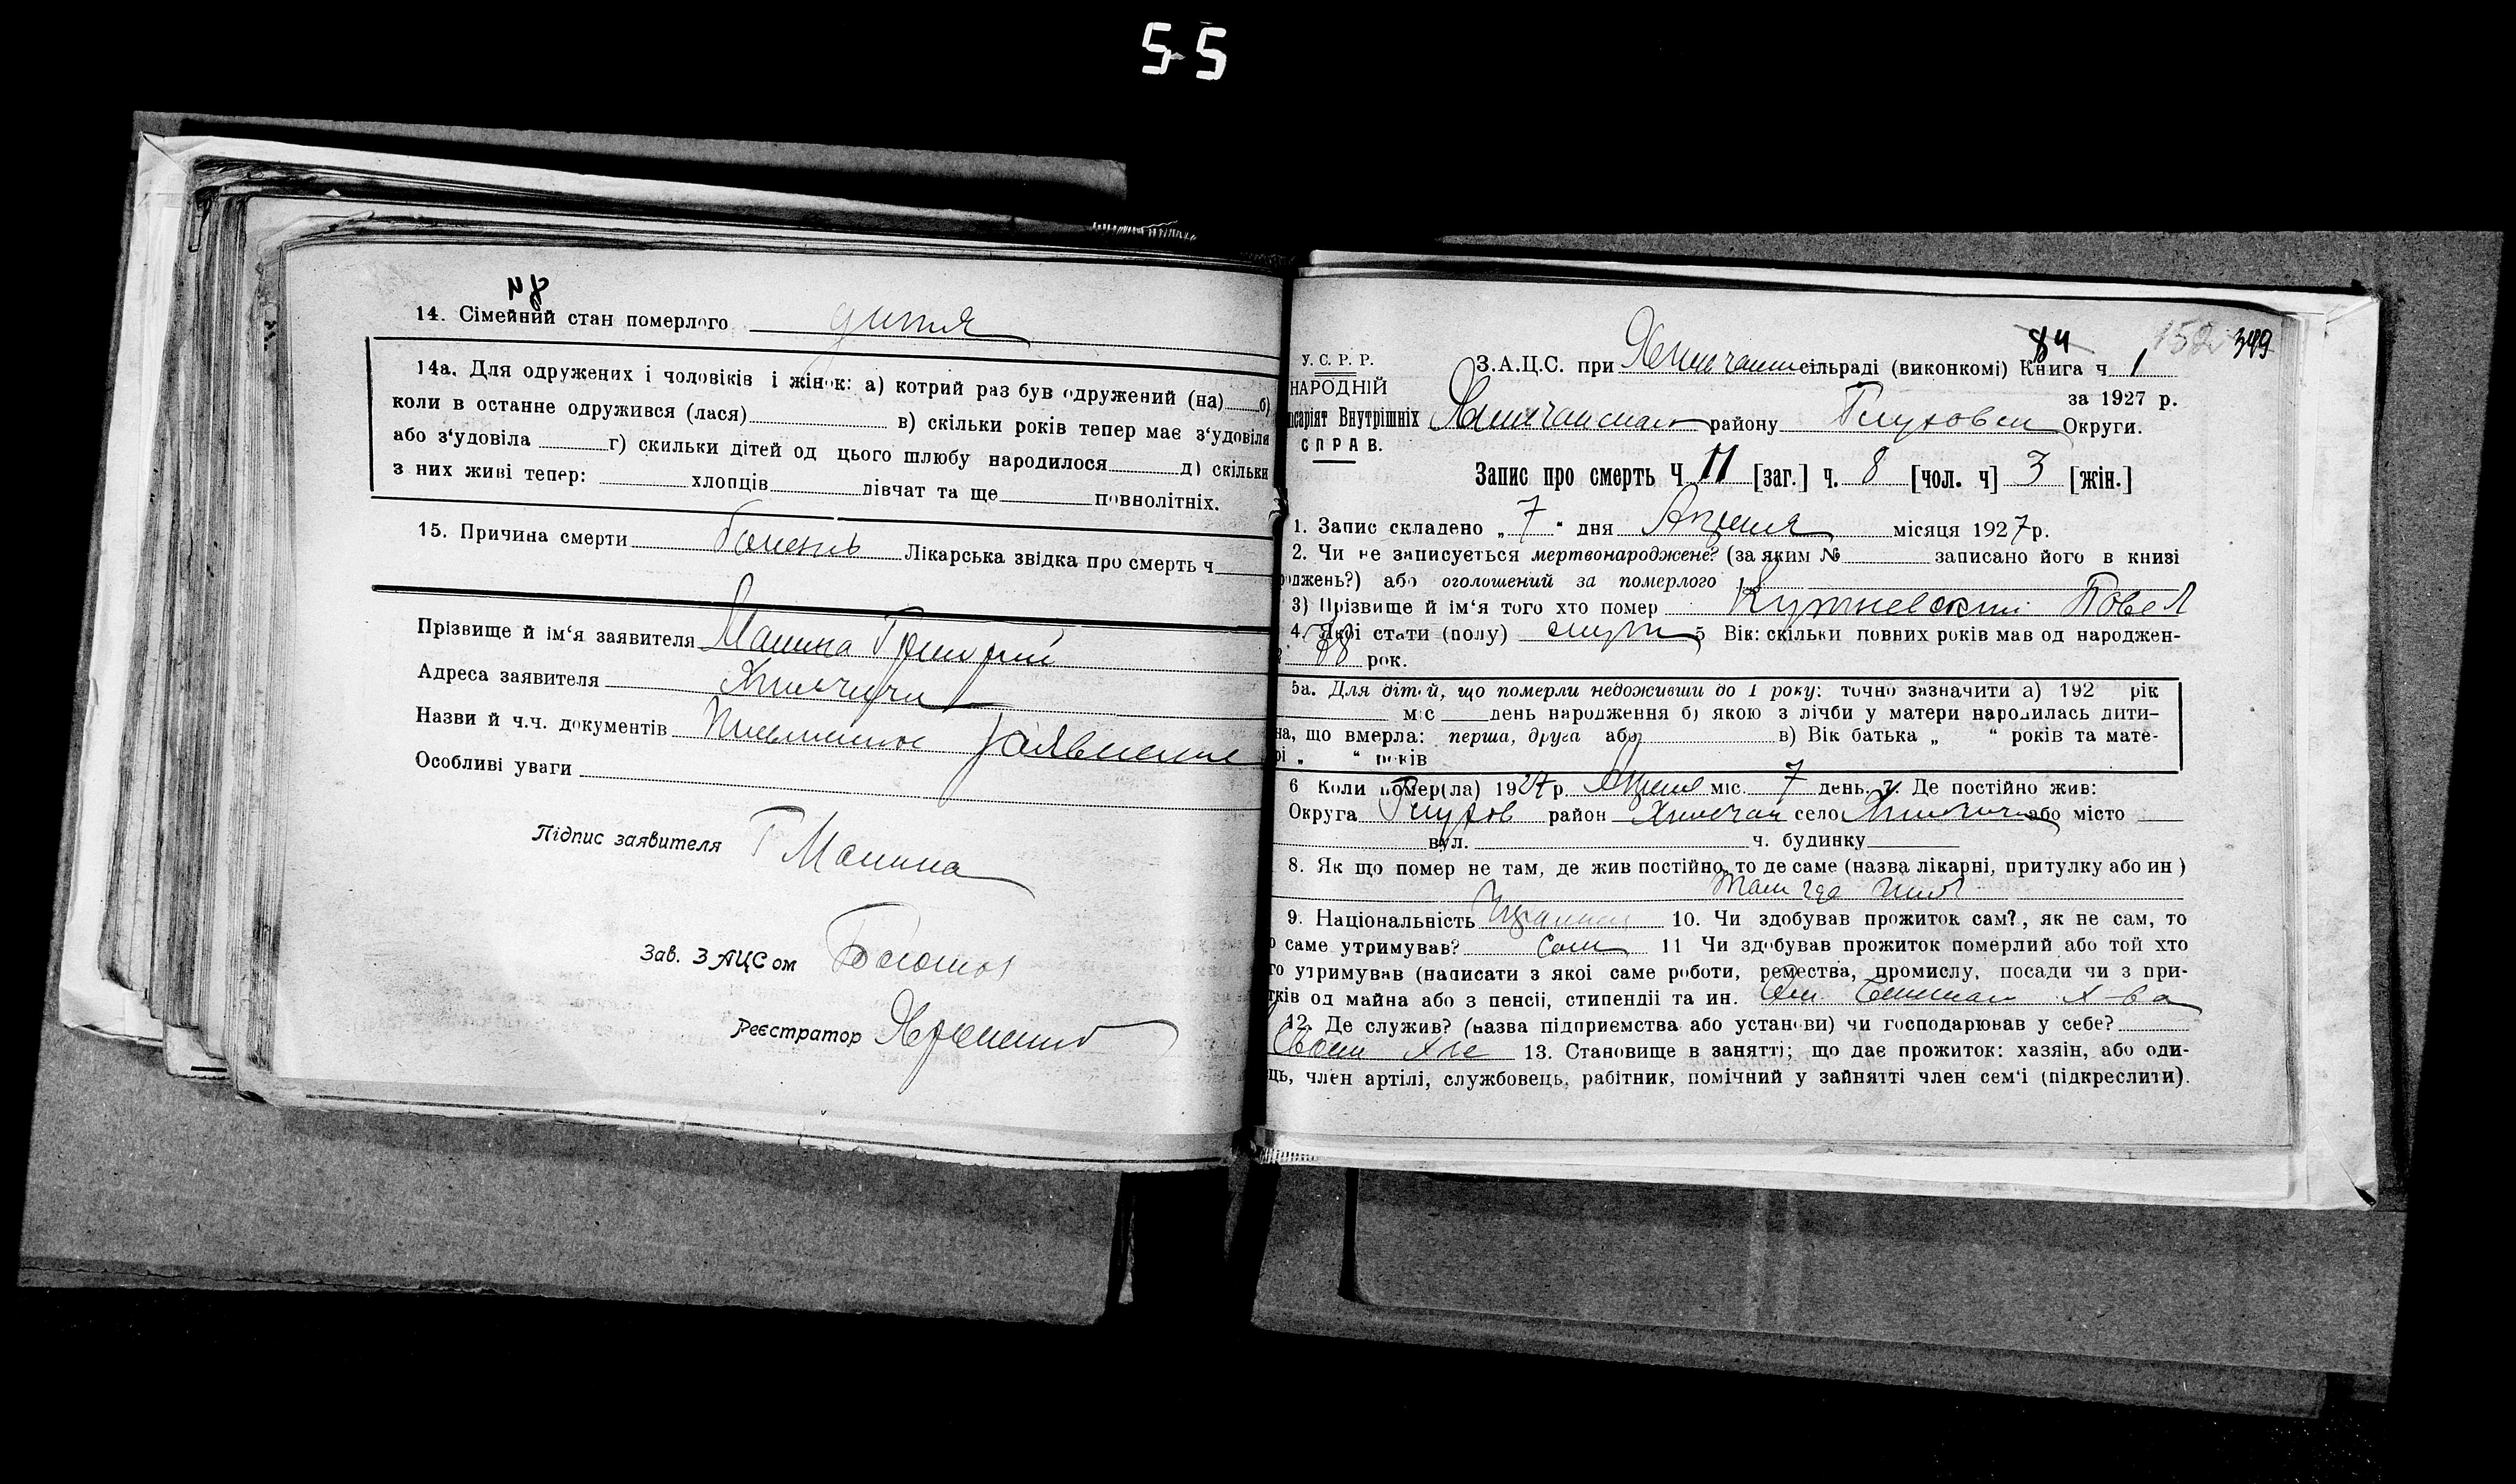 5-5
N8
14. Сімейний стан померлого дитя
14а. Для одружених і чоловіків і жінок: а) котрий раз був одружений (на) б)
коли в останне одружився (лася) в) скільки років тепер має з'удовіля
або з'удовіла г) скильки дітей од цього шлюбу народилося д) скільки
з них живі тепер: хлопців дівчат та ще повнолітніх.
15. Причина смерти болезнь Лікарська звідка про смерть ч
Прізвище й ім'я заявителя Малина Григорий
Адреса заявителя Хильчичи
Назви й ч.ч. документів Письменное заявление
Особливі уваги
Підпис заявителя Г Малина
Зав. ЗАЦСом
Реєстратор
84 152 349
У. С. Р. Р.
З.А.Ц.С. при сільраді (виконкомі) Книга ч 1
НАРОДНІЙ
за 1927 р.
ісаріят Внутрішніх району Глуховск Округи.
СПРАВ.
Запис про смерть Ч 11 [заг.] ч. 8 [чол. ч] 3 [жін.]
1. Запис складено „ 7 “ дня Апреля місяця 1927р.
2. Чи не записується мертвонароджене? (за яким № записано його в книзі
роджень?) або оголошений за померлого
3) Прізвище й ім'я того хто помер Павел
4. Якої стати (полу) 5 Вік: скільки повних років мав од народжен-
68 рок.
5а. Для дітей, що померли недоживши до 1 року: точно зазначити а) 192 рік
міс день народження б) якою з лічби у матери народилась дити-
на, що вмерла: перша, друга або в) Вік батька „ “ років та мате-
рі „ “ років
6 Коли помер(ла) 1927 р. Апреля міс. 7 день. 7. Де постійно жив:
Округа Глухов район Хильчан село Хильчичи або місто
вул. ч. будинку
8. Як що помер не там, де жив постійно, то де саме (назва лікарні, притулку або ин )
там где жил
9. Національність Украинец 10. Чи здобував прожиток сам?, як не сам, то
о саме утримував? сам 11 Чи здобував прожиток померлий або той хто
го утримував (написати з якої саме роботи, ремества, промислу, посади чи з при-
тків од майна або з пенсії, стипендії та ин. От Сельского х-ва
12. Де служив? (назва підприємства або установи) чи господарював у себе?
13. Становище в занятті; що дає прожиток: хазяїн, або оди-
ць, член артілі, службовець, рабітник, помічний у зайнятті член сем'ї (підкреслити).